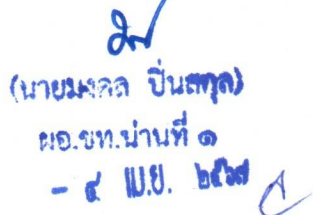 (นายมงคล ปิ่นสกุล)
ผอ.ขท.น่านที่ ๑
- ๔ เม.ย. ๒๕๖๗